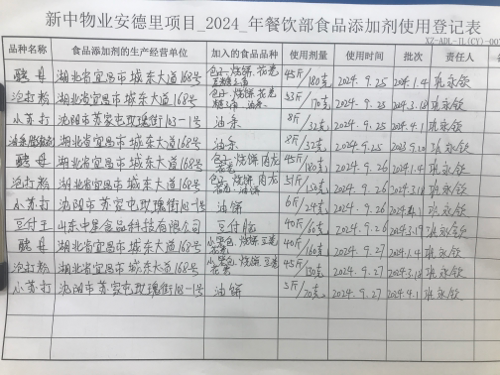 新中物业安德里项目_2024_年餐饮部食品添加剂使用登记表
XZ-ADL-JL(CY)-00
品种名称 食品添加剂的生产经营单位 加入的食品品种 使用剂量 使用时间 批次 责任人
酵母 湖北省宜昌市城东大道168号 包子、烧饼、花卷 45斤/180克 2024.9.25 2024.1.4
泡打粉 湖北省宜昌市城东大道168号 包子、烧饼、花卷 油条 53斤/170克 2024.9.25 2024.3.18
小苏打 沈阳市苏家屯玫瑰街103-1号 油条 8斤/32克 2024.9.25 2024.4.1
湖北省宜昌市城东大道168号 油条 8斤/32克 2024.9.25 2023.9.10
酵母 湖北省宜昌市城东大道168号 包子、烧饼、肉龙 花卷 45斤/180克 2024.9.26 2024.1.4
泡打粉 湖北省宜昌市城东大道168号 包子、烧饼、肉龙 花卷 油饼 51斤/150克 2024.9.26 2024.3.18
小苏打 沈阳市苏家屯玫瑰街103-1号 油饼 6斤/24克 2024.9.26 2024.4.1
豆付王 山东中星食品科技有限公司 豆付脑 40斤/60克 2024.9.26 2024.3.17
酵母 湖北省宜昌市城东大道168号 烧饼 花卷 40斤/160克 2024.9.27 2024.1.4
泡打粉 湖北省宜昌市城东大道168号 烧饼 花卷 45斤/130克 2024.9.27 2024.3.18
小苏打 沈阳市苏家屯玫瑰街103-1号 油饼 5斤/20克 2024.9.27 2024.4.1